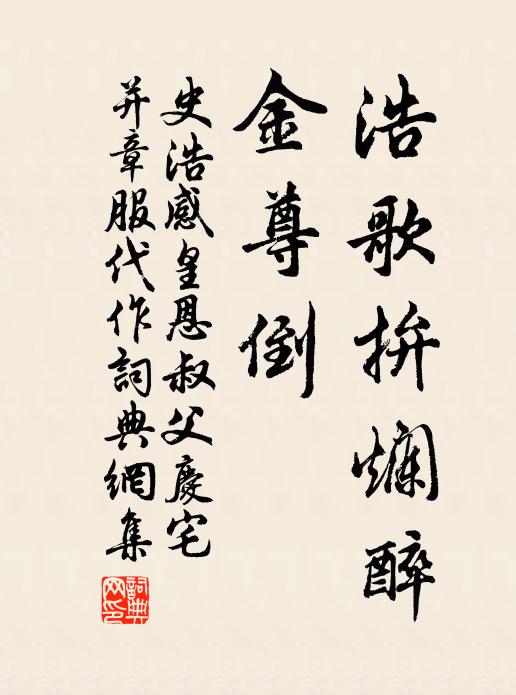 浩歌拚爛醉
金尊倒
史浩感皇恩叔父慶宅
并章服代作詞典網集
詞典
网印